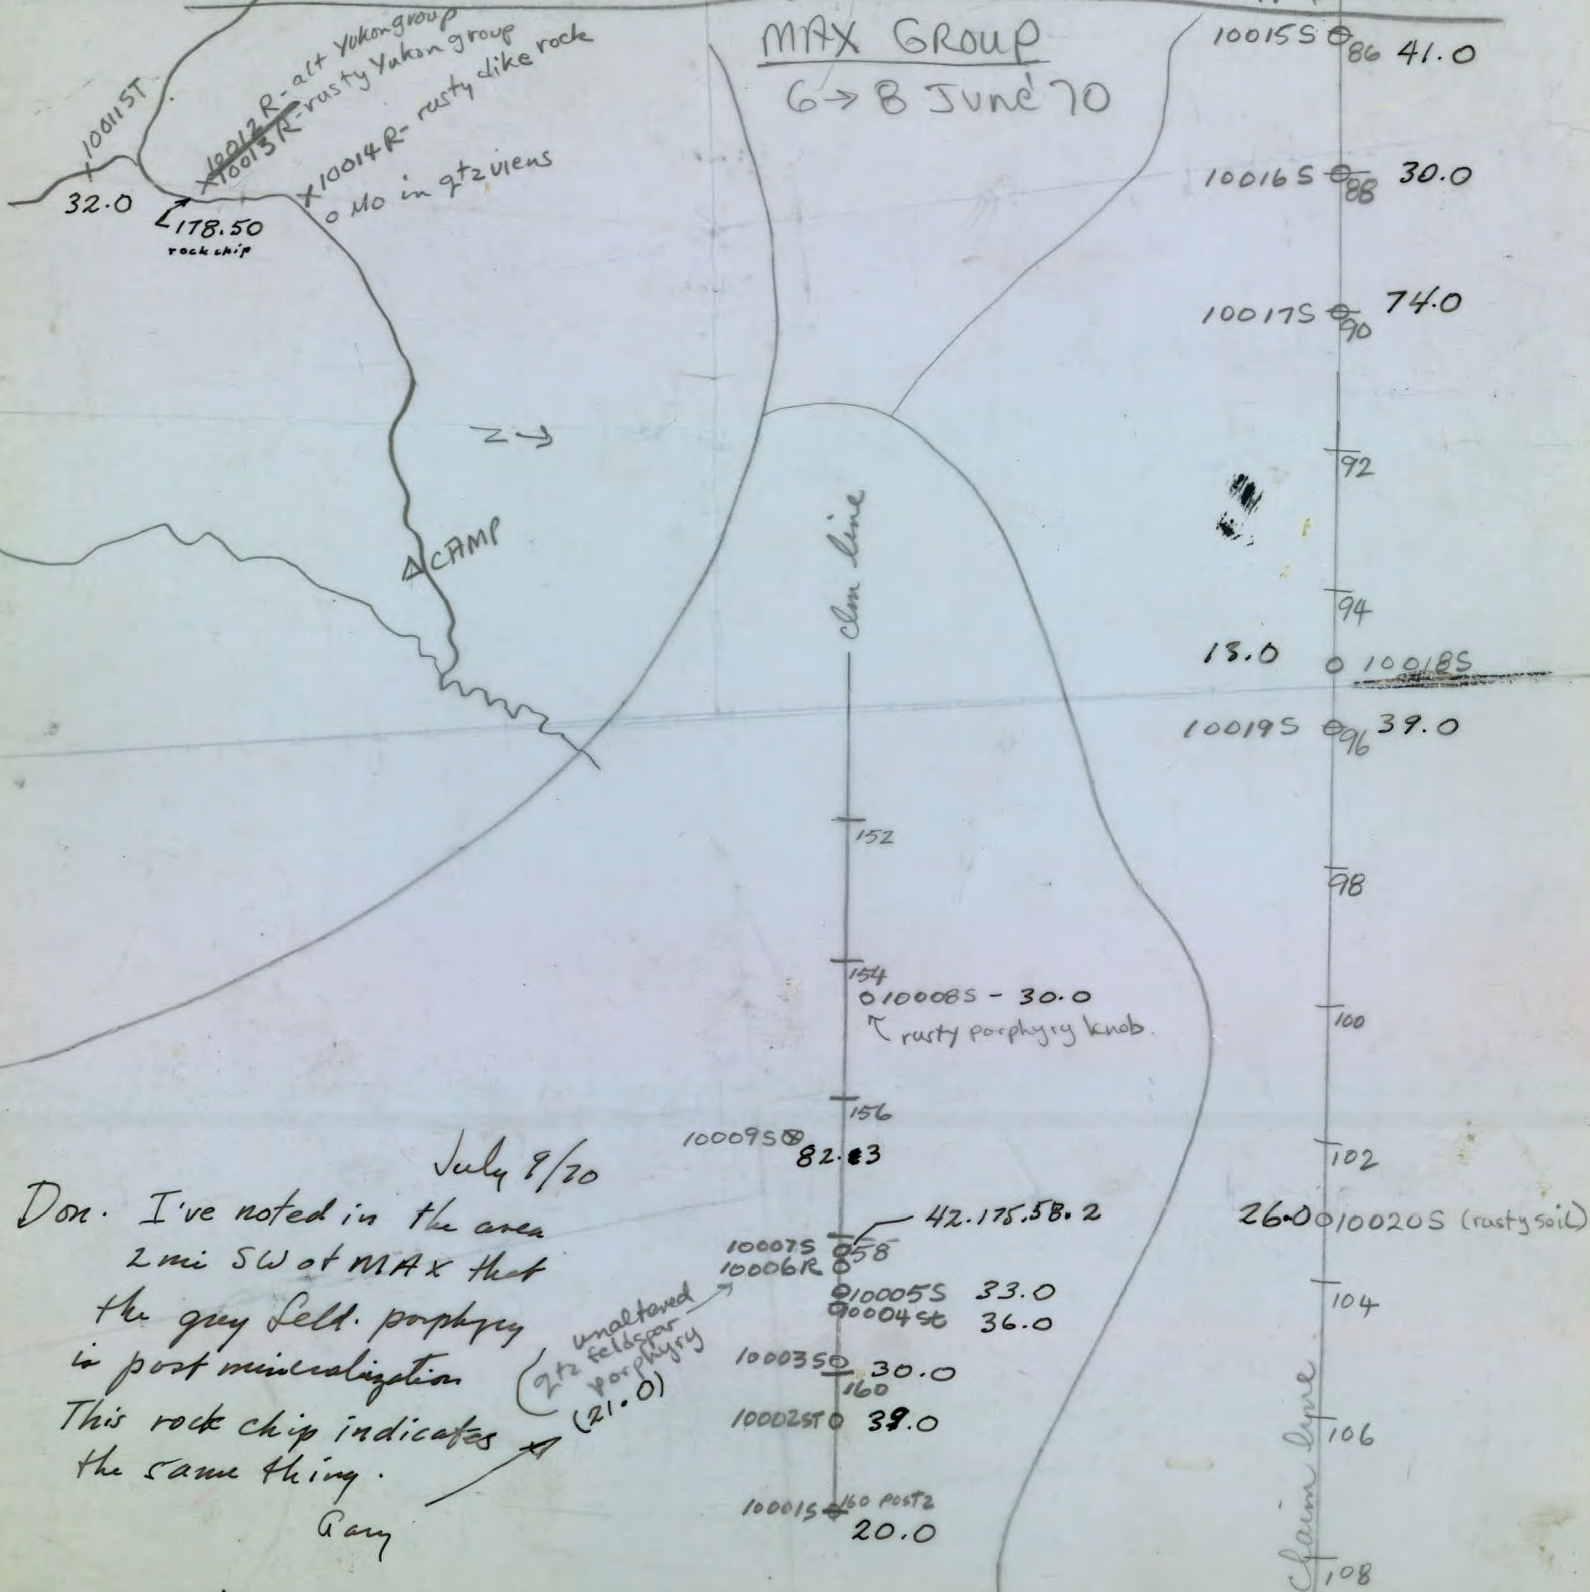 MAX GROUP
6→8 June '70
10011ST
32.0
10012R - alt Yukon group
10013R - rusty Yukon group
10014R - rusty dike rock
o Mo in qtz viens
178.50
rock chip
N→
CAMP
clm line
152
154
10008S - 30.0
rusty porphyry knob.
156
10009S
82.
42.175.58.2
10007S
58
10006R
10005S 33.0
10004St 36.0
10003S 30.0
160
10002ST 39.0
10001S 160 POST 2
20.0
unaltered
qtz feldspar
porphyry
(21.0)
July 9/70
Don. I've noted in the area
2 mi SW of MAX that
the grey feld. porphyry
is post mineralization
This rock chip indicates
the same thing.
Gary
10015S 86 41.0
10016S 88 30.0
10017S 90 74.0
92
94
13.0 10018S
10019S 96 39.0
98
100
102
26.0 10020S (rusty soil)
104
106
Claim line
108